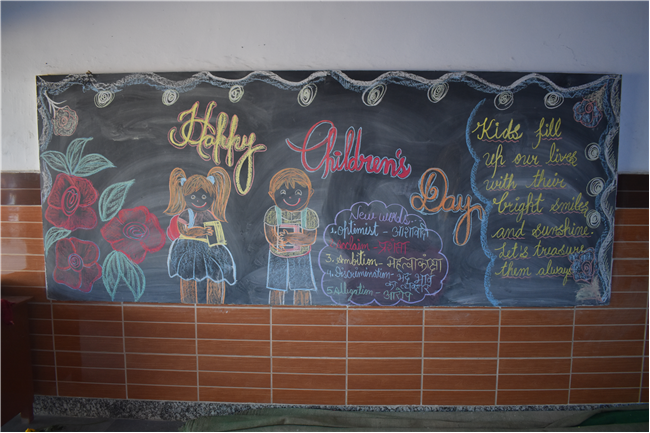 Happy
Children's
Day
New words
1. Optimist - आशावादी
Acclaim -
3. Ambition - महत्वाकांक्षा
4. Discrimination - भेद भाव
5. Allegation - आरोप
Kids fill
up our lives
with their
bright smiles
and sunshine.
Let's treasure
them always